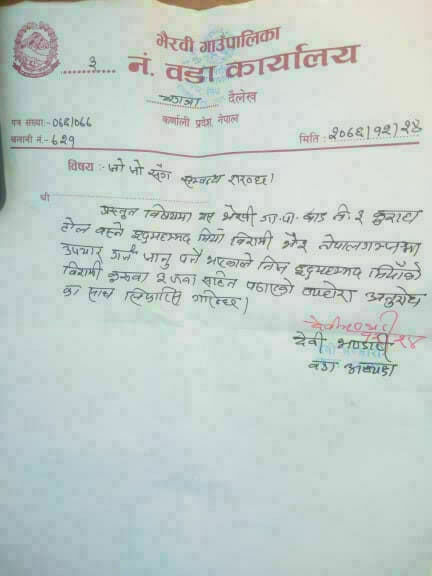 भैरवी गाउँपालिका
३ नं. वडा कार्यालय
दैलेख
कर्णाली प्रदेश, नेपाल
पत्र संख्या:-०७६/०७७
चलानी नं.- ६२१
मिति : २०७६/१२/२४
विषय :- जो जो संग सम्बन्ध राख्दछ।
श्री
प्रस्तुत विषयमा यस भैरवी गा.पा. वडा नं. ३
टोल बस्ने इदुमहम्मद मियाँ बिरामी भै नेपालगन्जमा
उपचार गर्न जानु पर्ने भएकाले निज इदुमहम्मद मियाँको
बिरामी कुरुवा २ जना सहित पठाएको व्यहोरा अनुरोध
का साथ सिफारिस गरिन्छ।
देवी भण्डारी
वडा अध्यक्ष